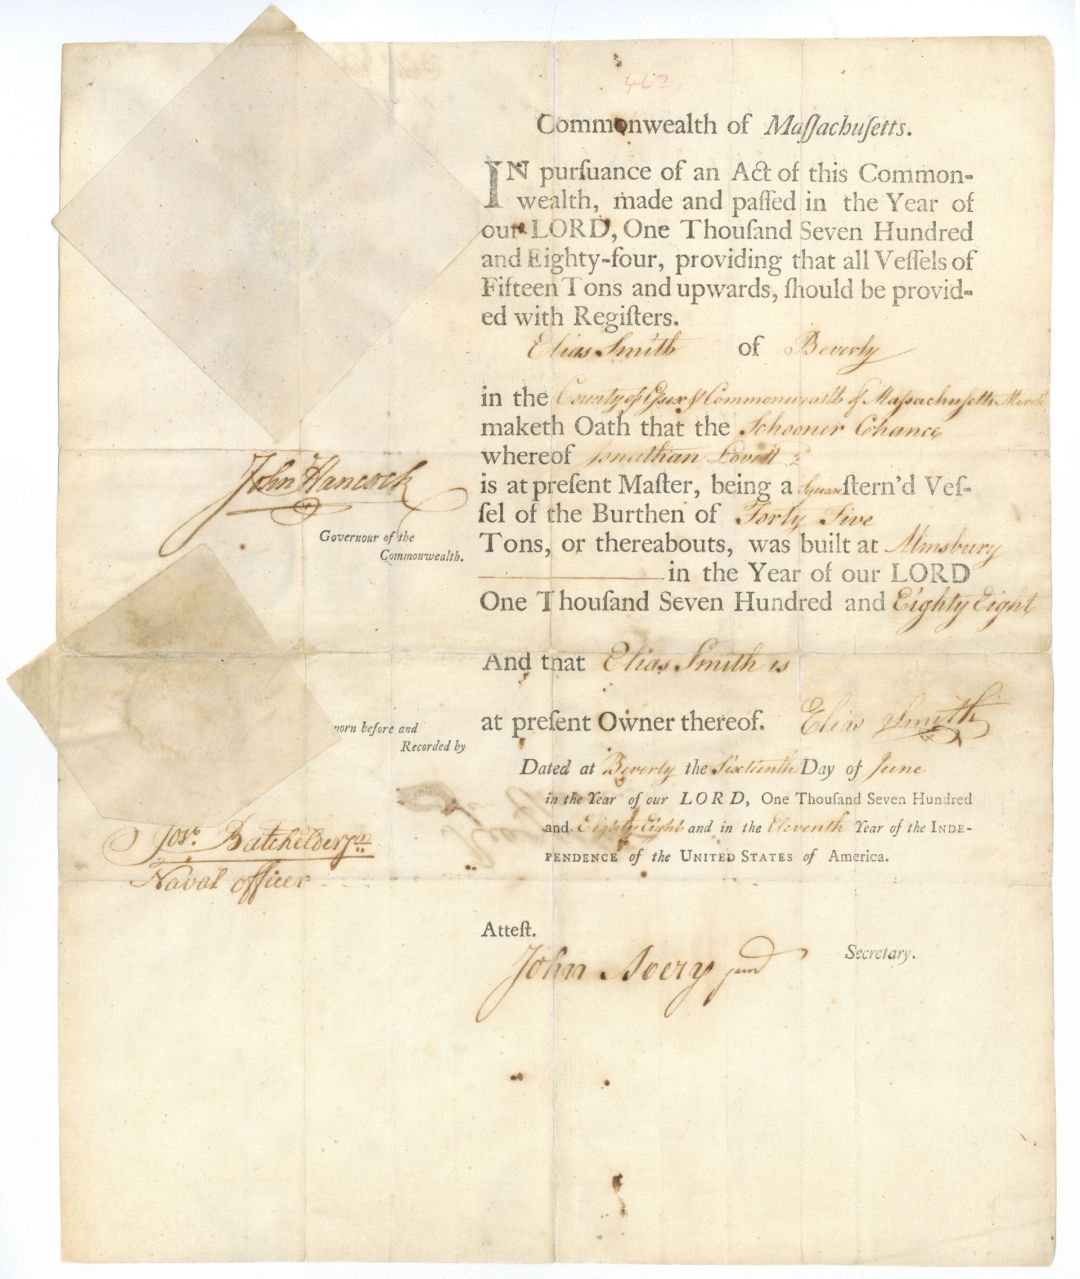 462
Commonwealth of Maſſachuſetts.
IN purſuance of an Act of this Common-
wealth, made and paſſed in the Year of
our LORD, One Thouſand Seven Hundred
and Eighty-four, providing that all Veſſels of
Fifteen Tons and upwards, ſhould be provid-
ed with Regiſters.
Elias Smith of Beverly
in the County of Eſsex & Commonwealth of Maſsachuſetts Merch
maketh Oath that the Schooner Chance
whereof Jonathan Lovett
is at preſent Maſter, being a Square ſtern'd Veſ-
ſel of the Burthen of Forty Five
Tons, or thereabouts, was built at Almsbury
in the Year of our LORD
One Thouſand Seven Hundred and Eighty Eight
And that Elias Smith is
at preſent Owner thereof. Elias Smith
Dated at Beverly the Sixteenth Day of June
in the Year of our LORD, One Thouſand Seven Hundred
and Eighty Eight and in the Eleventh Year of the INDE-
PENDENCE of the UNITED STATES of America.
Atteſt.
John Avery junr Secretary.
John Hancock
Governour of the
Commonwealth.
worn before and
Recorded by
Josh. Batchelder Jnr
Naval officer